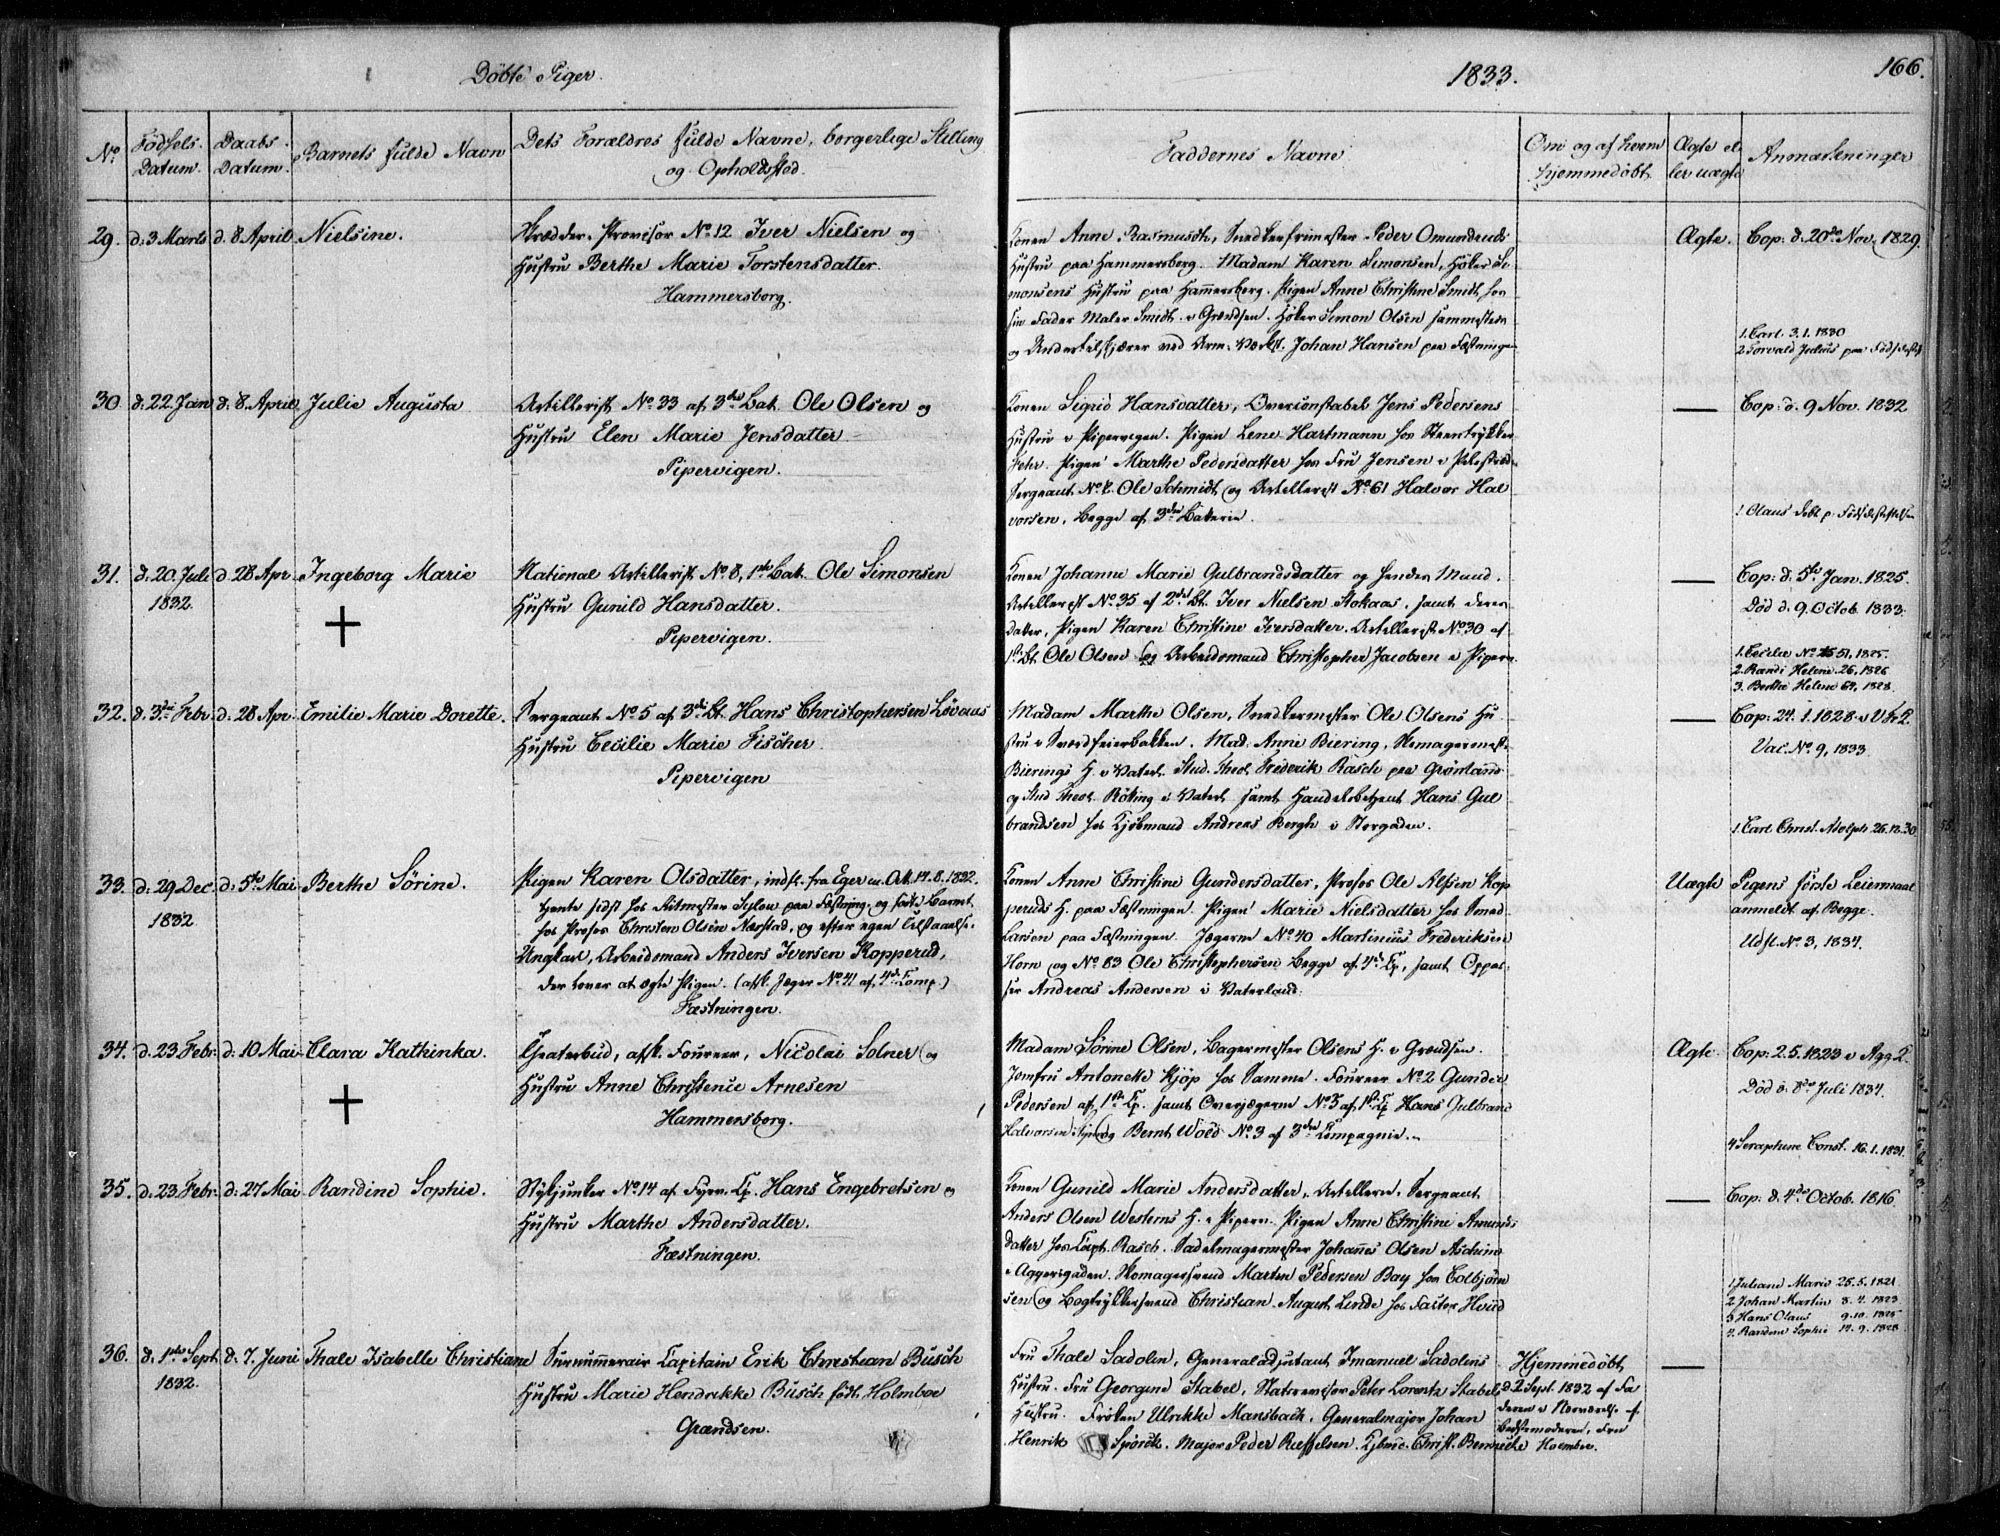 Døbte Piger.
1833.
166.
No.
Fødsels-Datum.
Daabs-Datum.
Barnets fulde Navn
Dets Forældres fulde Navne, borgerlige Stilling og Opholdsted.
Faddernes Navne
Om og af hvem hjemmedøbt
Ægte eller uægte
Anmærkninger
29. d: 3 Marts d. 8 April Nielsine.
Skrædder-Provisor No. 12 Iver Nielsen og
Hustru Berthe Marie Torstensdatter.
Hammersborg.
Konen Anne Rasmusdt, Snedkerfrimester Peder Omundsens
Hustru paa Hammersberg. Madam Karen Simonsen, Høker Si
monsens Hustru paa Hammersberg. Pigen Anne Christine Smidt hos
sin Fader Maler Smidt i Grændsen. Høker Simon Olsen sammesteds
og Underkilskjærer ved Arm. Værkst. Johan Hansen paa Fæstningen
Ægte.
Cop: d. 20de Nov. 1829
1. Carl 3.1.1830
2. Torvald Julius paa Fødselsst.
30. d: 22 Jan d. 8 April Julie Augusta
Artillerist No. 33 af 3die Bat. Ole Olsen og
Hustru Elen Marie Jensdatter
Pipervigen.
Konen Sigrid Hansdatter, Overconstabel Jens Pedersens
Hustru i Pipervigen. Pigen Lene Hartmann hos Steentrykker
Fehr. Pigen Marthe Pedersdatter hos Fru Jensen i Pilestræd
Sergeant No. 2 Ole Schmidt og Artillerist No. 61 Halvor Hal
vorsen, begge af 3die Batterie.
—
Cop: d. 9 Nov. 1832
1 Olaus døbt p. Fødselsstiftelsen
31. d: 20. Juli d. 28 Apr. Ingeborg Marie
1832.
+
National Artillerist No. 8, 1ste Bat. Ole Simonsen
Hustru Gunild Hansdatter.
Pipervigen.
Konen Johanne Marie Gulbrandsdatter og hendes Mand.
Artillerist No. 35 af 2det Bt. Iver Nielsen Stokaas, samt deres
Datter, Pigen Karen Christine Iversdatter. Artillerist No. 30 af
1ste Bt. Ole Olsen og Arbeidsmand Christopher Jacobsen i Piperv.
—
Cop: d: 5te Jan. 1825.
Død d. 9. Octob. 1833.
1. Cecilie No. 51, 1825.
2. Randi Helene 26, 1826
3. Berthe Helene 64, 1828.
32. d. 3die Febr. d. 28 Apr. Emilie Marie Dorette.
Sergeant No. 5 af 3die Bt. Hans Christophersen Løvaas
Hustru Cecilie Marie Fischer.
Pipervigen
Madam Marthe Olsen, Snedkermester Ole Olsens Hu
stru i Sværdfeierbakken. Mad. Anne Biering, Skomagermest.
Bierings H. i Vaterl. Stud. Theol. Frederik Rasch paa Grønland
og Stud Theol. Röking i Vaterl samt Handelsbetjent Hans Gul
brandsen hos Kjøbmand Andreas Bergh i Storgaden.
—
Cop: 24.1.1828 i V. Fr. K.
Vac. No. 9, 1833.
1. Carl Christ. Adolph 26.12.30.
33. d. 29 Dec. d. 5te Mai Berthe Sørine.
1832
Pigen Karen Olsdatter, indfl. fra Eger m. Att. 14.8.1832.
tjente sidst hos Ritmester Sylou paa Fæstning. og fødte Barnet
hos Profos Christen Olsen Nærstad, og efter egen Tilstaaelse.
Ungkarl, Arbeidsmand Anders Iversen Kopperud,
der lover at ægte Pigen. (afsk. Jæger No. 41 af 4de Comp.)
Fæstningen.
Konen Anne Christine Gundersdatter, Profos Ole Alfsen Kop
peruds H. paa Fæstningen. Pigen Marie Nielsdatter hos Smed
Larsen paa Fæstningen. Jægerne No. 40 Martinius Frederiksen
Horn og No. 83 Ole Christophersen begge af 4de Cp, samt Oppas
ser Andreas Andersen i Vaterland.
Uægte
Pigens første Leiermaal
anmeldt af Begge.
Udsl. No. 3, 1834.
34. d. 23 Febr. d: 10 Mai Clara Kathinka.
+
Theaterbud, afsk. Foureer, Nicolai Solner og
Hustru Anne Christence Arnesen
Hammersborg.
Madam Sørine Olsen, Bagermester Olsens H. i Grændsen.
Jomfru Antonette Kjöp hos Samme. Foureer No. 2 Gunder
Pedersen af 1ste Cp. samt Overjægerne No. 5 af 1ste Cp Hans Gulbrand
Halvorsen og Bernt Wold No. 3 af 3die Compagnie.
Ægte
Cop: 2.5.1823 i Agg. K.
Død d. 8de Juli 1834.
4 Seraphine Const. 16.1.1831.
35. d. 23 Febr. d: 27 Mai Randine Sophie.
Stykjunker No. 14 af Fyrv. Cp. Hans Engebretsen og
Hustru Marthe Andersdatter.
Fæstningen.
Konen Gunild Marie Andersdatter, Artilleri Sergeant
Anders Olsen Westerns H. i Piperv. Pigen Anne Christine Amunds
datter hos Capt. Rasch. Sadelmagermester Johannes Olsen Aschim
i Aggersgaden. Skomagersvend Marten Pedersen Bay hos Colbjørn
sen og Bogtrykkersvend Christian August Linde hos Factor Hviid
—
Cop: d. 4de Octob. 1816
1 Juliane Marie 25.5.1821
2 Johan Martin 8.4.1823
3 Hans Olaus 9.10.1825
4. Randine Sophie 12.9.1828
36. d. 1ste Sept. d. 7. Juni Thale Isabelle Christiane
1832.
Surnummerair Capitain Erik Christian Büsch
Hustru Marie Hendrikke Büsch født Holmboe
Grændsen.
Fru Thale Sadolin, Generaladjutant Imanuel Sadolins
Hustru. Fru Georgine Stabel, Statsrevisor Peter Lorentz Stabels
Hustru. Frøken Ulrikke Mansbach. Generalmajor Johan
Henrik Spörck. Major Peder Ræffelsen. Christ. Bennecke
Hjemmedöbt
d. 2 Sept. 1832 af Fa
deren i Nærværelse af
Bedstemoderen, Fru
Holmboe.
—